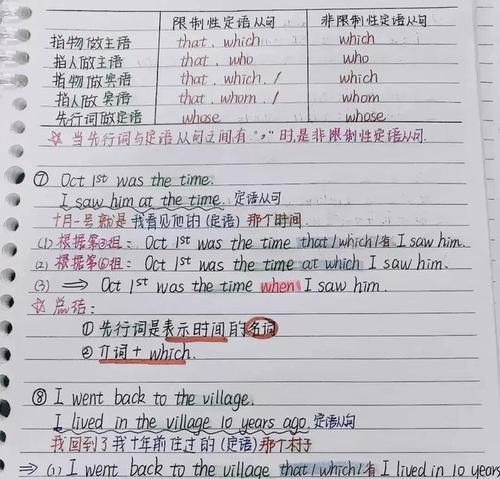 限制性定语从句 非限制性定语从句
指物做主语 that、which which
指人做主语 that、who who
指物做宾语 that、which、/ which
指人做宾语 that、whom、/ whom
先行词做定语 whose whose
☆ 当先行词与定语从句之间有“,”时,是非限制性定语从句.
⑦ Oct 1st was the time.
I saw him at the time. 定语从句
十月一号就是我看见他的(定语)那个时间
(1) 根据第③组: Oct 1st was the time that/which/省 I saw him.
(2) 根据第⑥组: Oct 1st was the time at which I saw him.
(3) ⇒ Oct 1st was the time when I saw him.
☆ 总结:
① 先行词是表示时间的名词
② 介词 + which.
⑧ I went back to the village.
I lived in the village 10 years ago. 定语从句
我回到了我十年前住过的(定语)那个村子
⇒ (1) I went back to the village that/which/省 I lived in 10 years